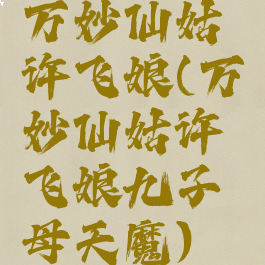 万妙仙姑
许飞娘(万
妙仙姑许
飞娘九子
母天魔)